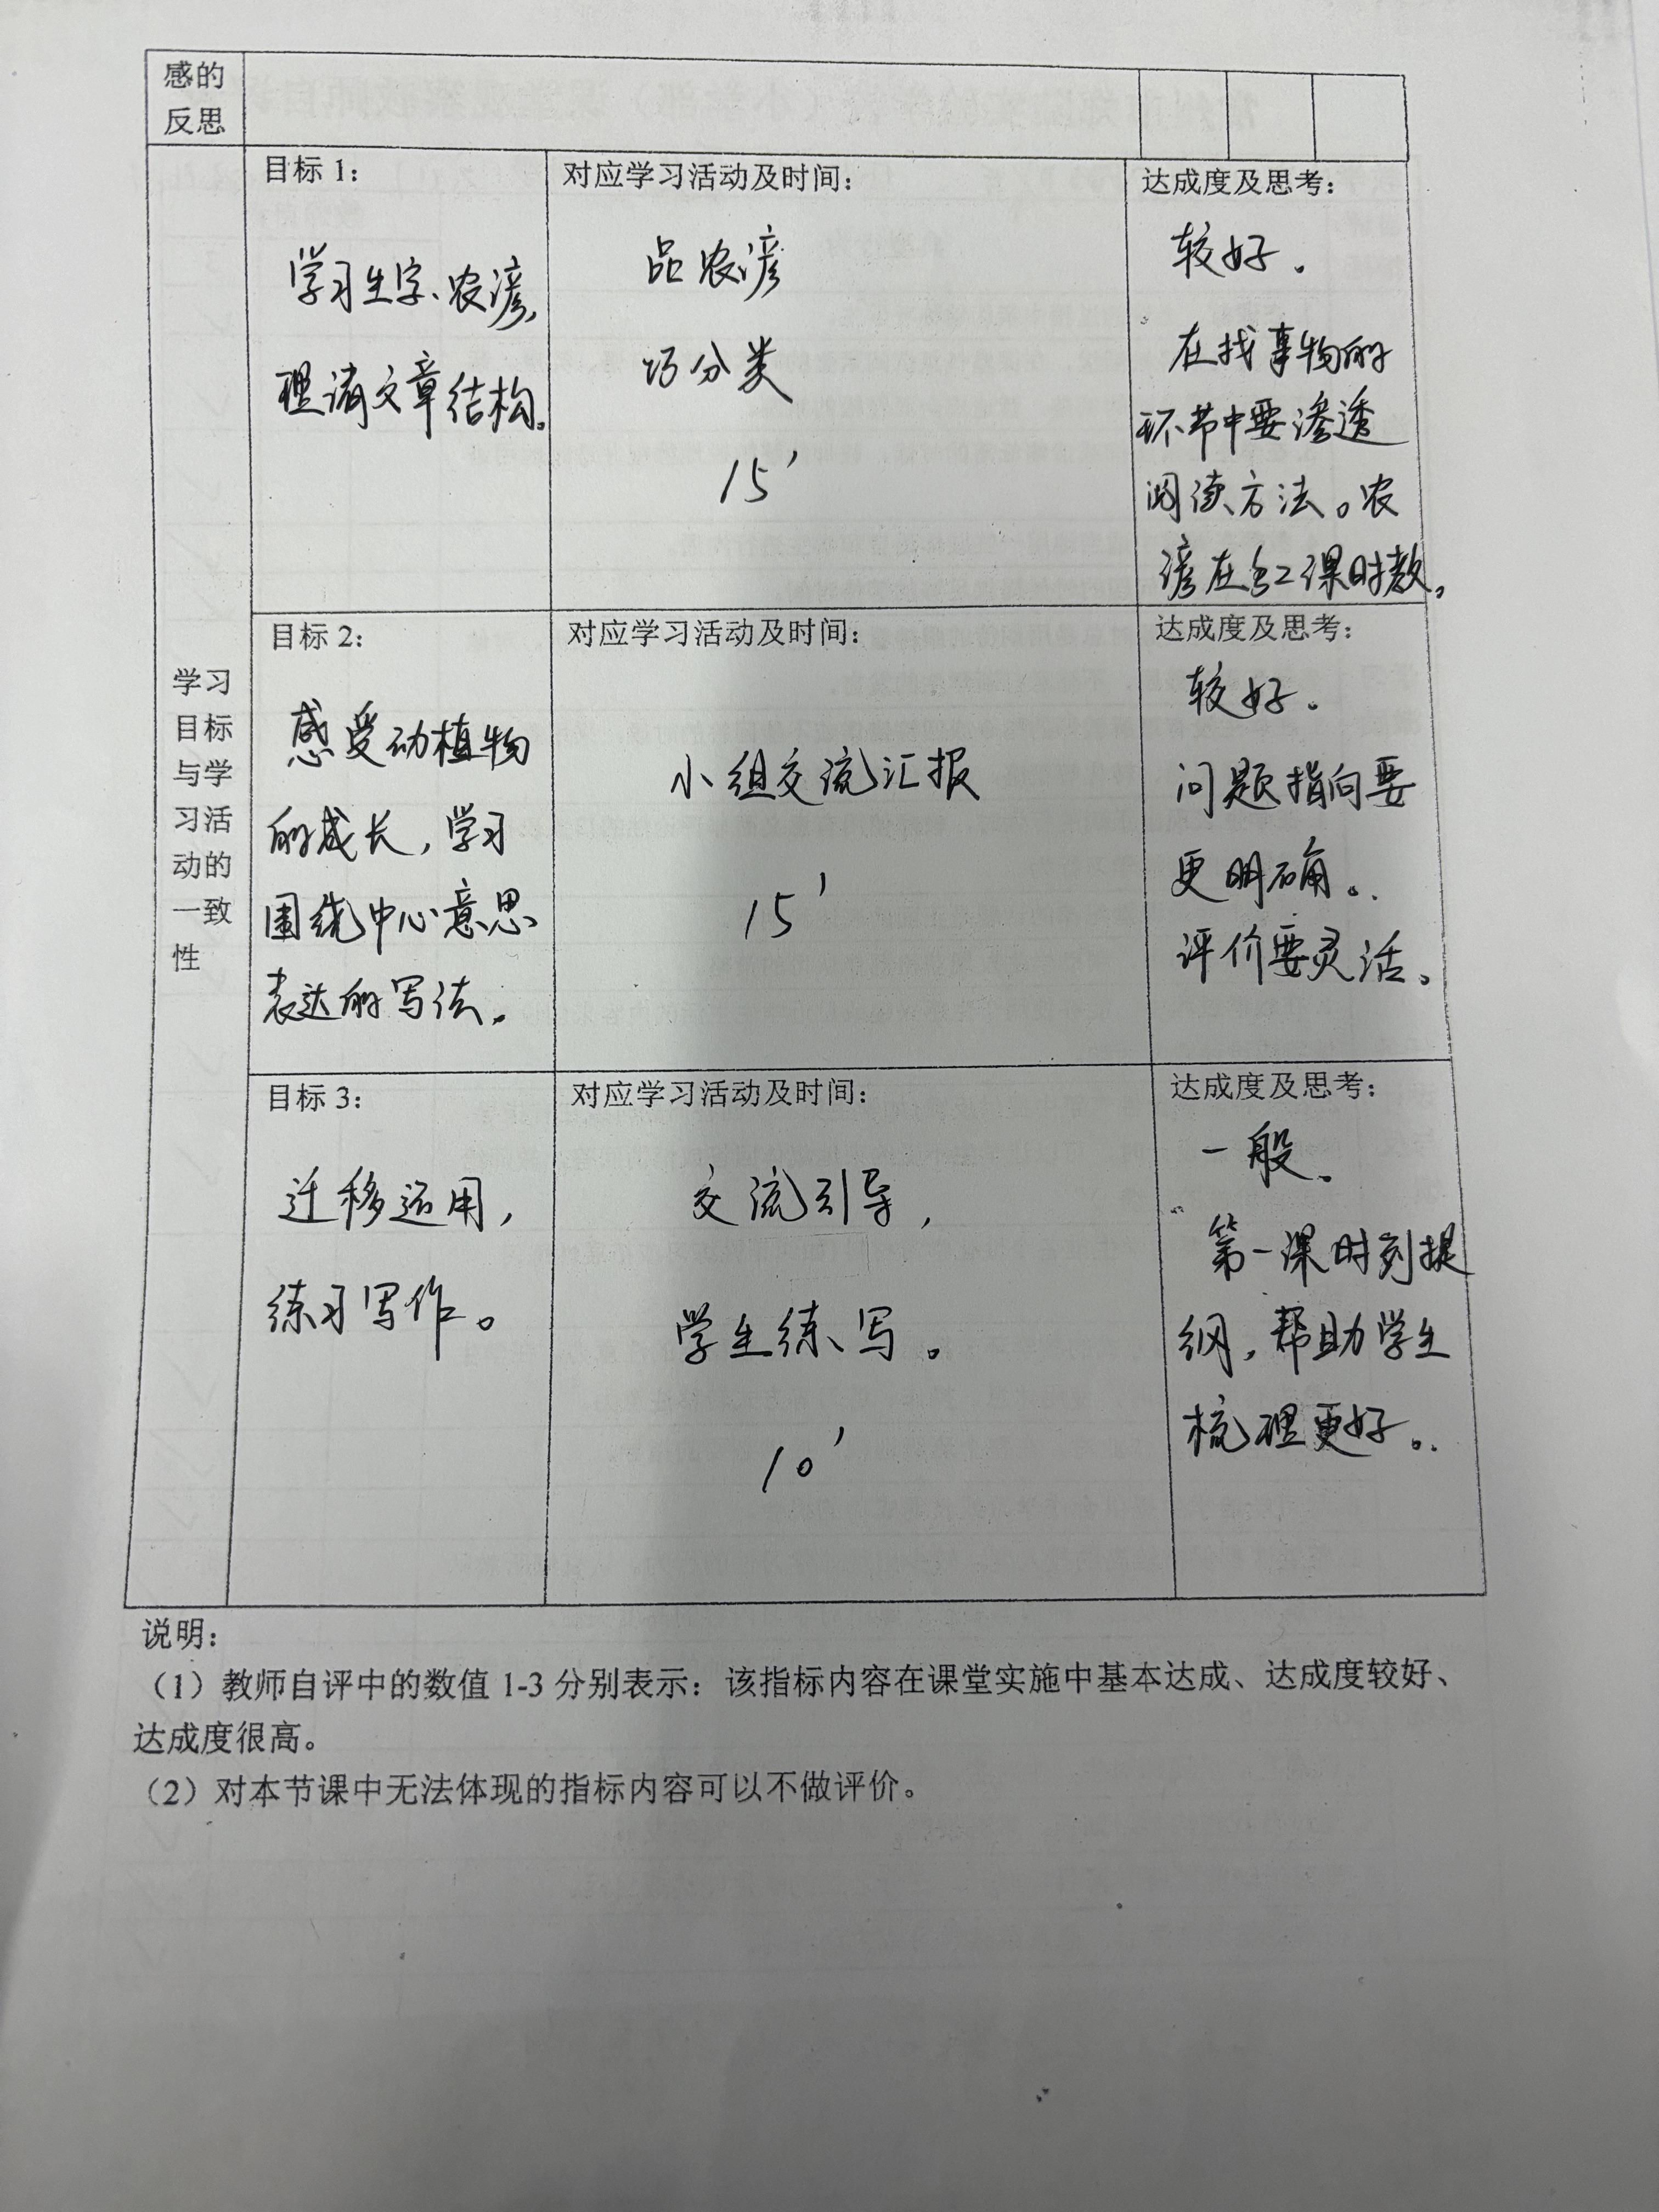 感的
反思
学习
目标
与学
习活
动的
一致
性
目标 1：
学习生字、农谚，
理清文章结构。
对应学习活动及时间：
品农谚
巧分类
15'
达成度及思考：
较好。
在找事物的
环节中要渗透
阅读方法。农
谚在第2课时教。
目标 2：
感受动植物
的成长，学习
围绕中心意思
表达的写法。
对应学习活动及时间：
小组交流汇报
15'
达成度及思考：
较好。
问题指向要
更明确。
评价要灵活。
目标 3：
迁移运用，
练习写作。
对应学习活动及时间：
交流引导，
学生练写。
10'
达成度及思考：
一般。
第一课时列提
纲，帮助学生
梳理更好。
说明：
（1）教师自评中的数值 1-3 分别表示：该指标内容在课堂实施中基本达成、达成度较好、
达成度很高。
（2）对本节课中无法体现的指标内容可以不做评价。